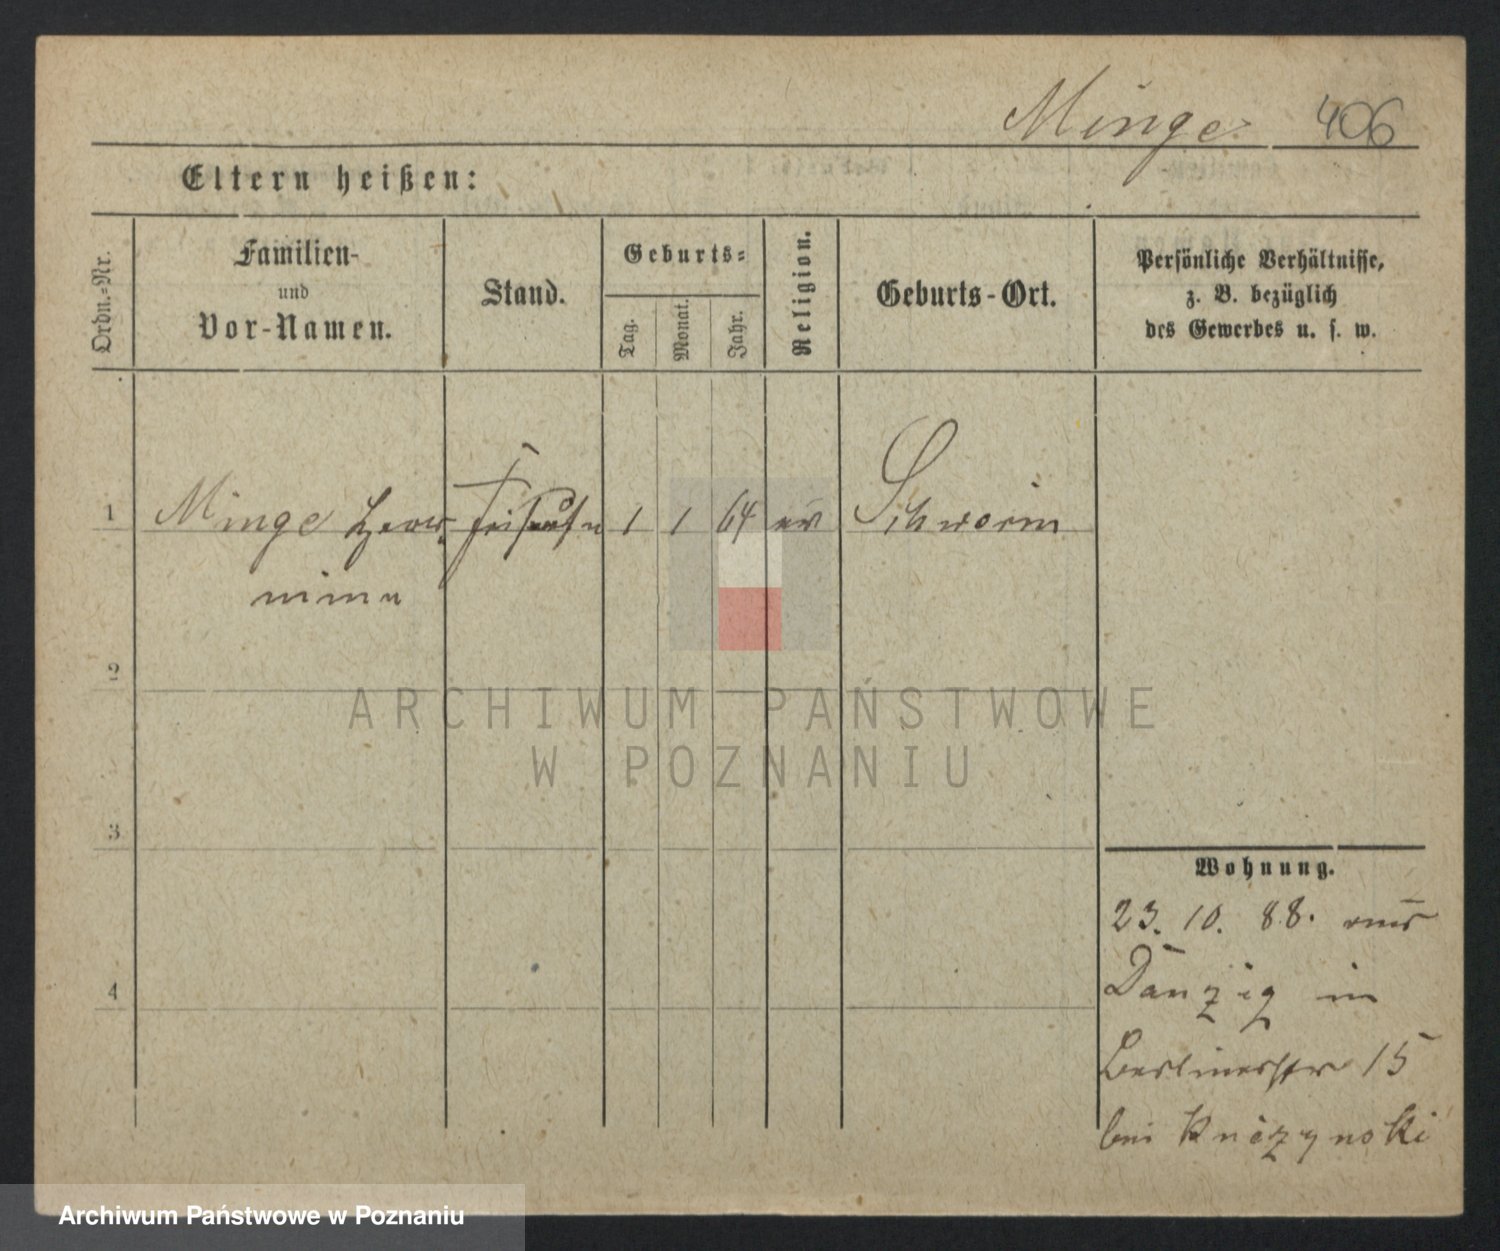 Minge 406
Eltern heißen:
Ordn.-Nr.
Familien-
und
Vor-Namen.
Stand.
Geburts-
Tag.
Monat.
Jahr.
Religion.
Geburts-Ort.
Persönliche Verhältnisse,
z. B. bezüglich
des Gewerbes u. s. w.
1 Minge 1 1 64 ev Schwerin
2
3
4
Wohnung.
23. 10. 88. aus
Danzig in
Berlinerstr 15
bei
ARCHIWUM PAŃSTWOWE
W POZNANIU
Archiwum Państwowe w Poznaniu